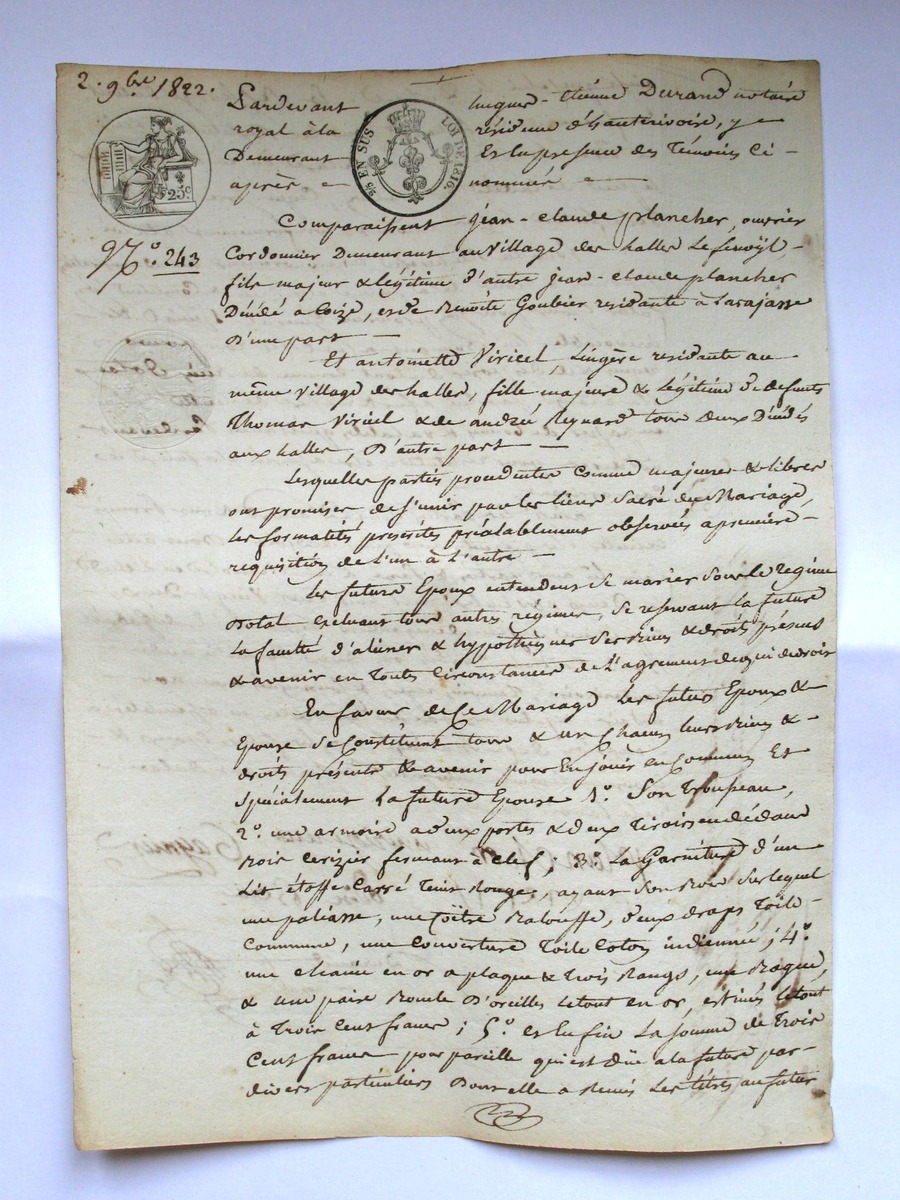 2. 9bre 1822.
Pardevant hugues-Etienne Durand notaire
royal à la résidence d'hauterivoire, y
Demeurant Et en presence des Témoins Ci-
après nommés
25 c
25 EN SUS LOI DE 1816.
N.° 243
Comparaissent jean-claude plancher, ouvrier
Cordonnier Demeurant au village des halles Le fenoÿl,
fils majeur & légitime d'autre jean-claude plancher
Décédé a Coize, et de Benoite Goubier residante à Larajasse
d'une part
Et antoinette Viricel, Lingère residante au
même village des halles, fille majeure & légitime de defunts
Thomas Viricel & de andrée Reynard tous deux Décédés
aux halles, D'autre part
Lesquelles parties procedentes Comme majeures & libres
ont promises de s'unir par les liens Sacré du Mariage,
les formalités prescrites préalablement observées a premiere
requisition de l'un à l'autre
Les futurs Epoux entendent Se marier Sous le regime
Dotal excluant tous autres régimes, Se reservant la future
la faculté d'aliener & hypothéquer Ses biens & droits présens
& avenir en Toutes Circonstances de L'agrement de qui de droit
En faveur de Ce Mariage Les futurs Epoux &
Epouse Se Constituent tous & un Chacun leurs biens &
droits présents & avenir pour En jouir en Commun Et
Spécialement La future Epouse 1.° Son Trousseau,
2.° une armoire a deux portes & deux Tiroirs en dedans
Bois Cerizier fermant à Clef; 3.° La Garniture d'un
Lit étoffe Carré Teint Rouge, ayant Son Bois Sur lequel
une paliasse, une Coître Balouffe, deux draps Toile
Commune, une Couverture Toile Coton indienné; 4.°
une Chaine en or a plaque & Trois Rangs, une Bague,
& une paire Boucle D'oreilles le tout en or, estimés le tout
à Trois Cent francs; 5.° et En fin La Somme de Trois
Cent francs pour pareille qui est Düe a la future par
divers particuliers Dont elle a Remis Les titres au futur